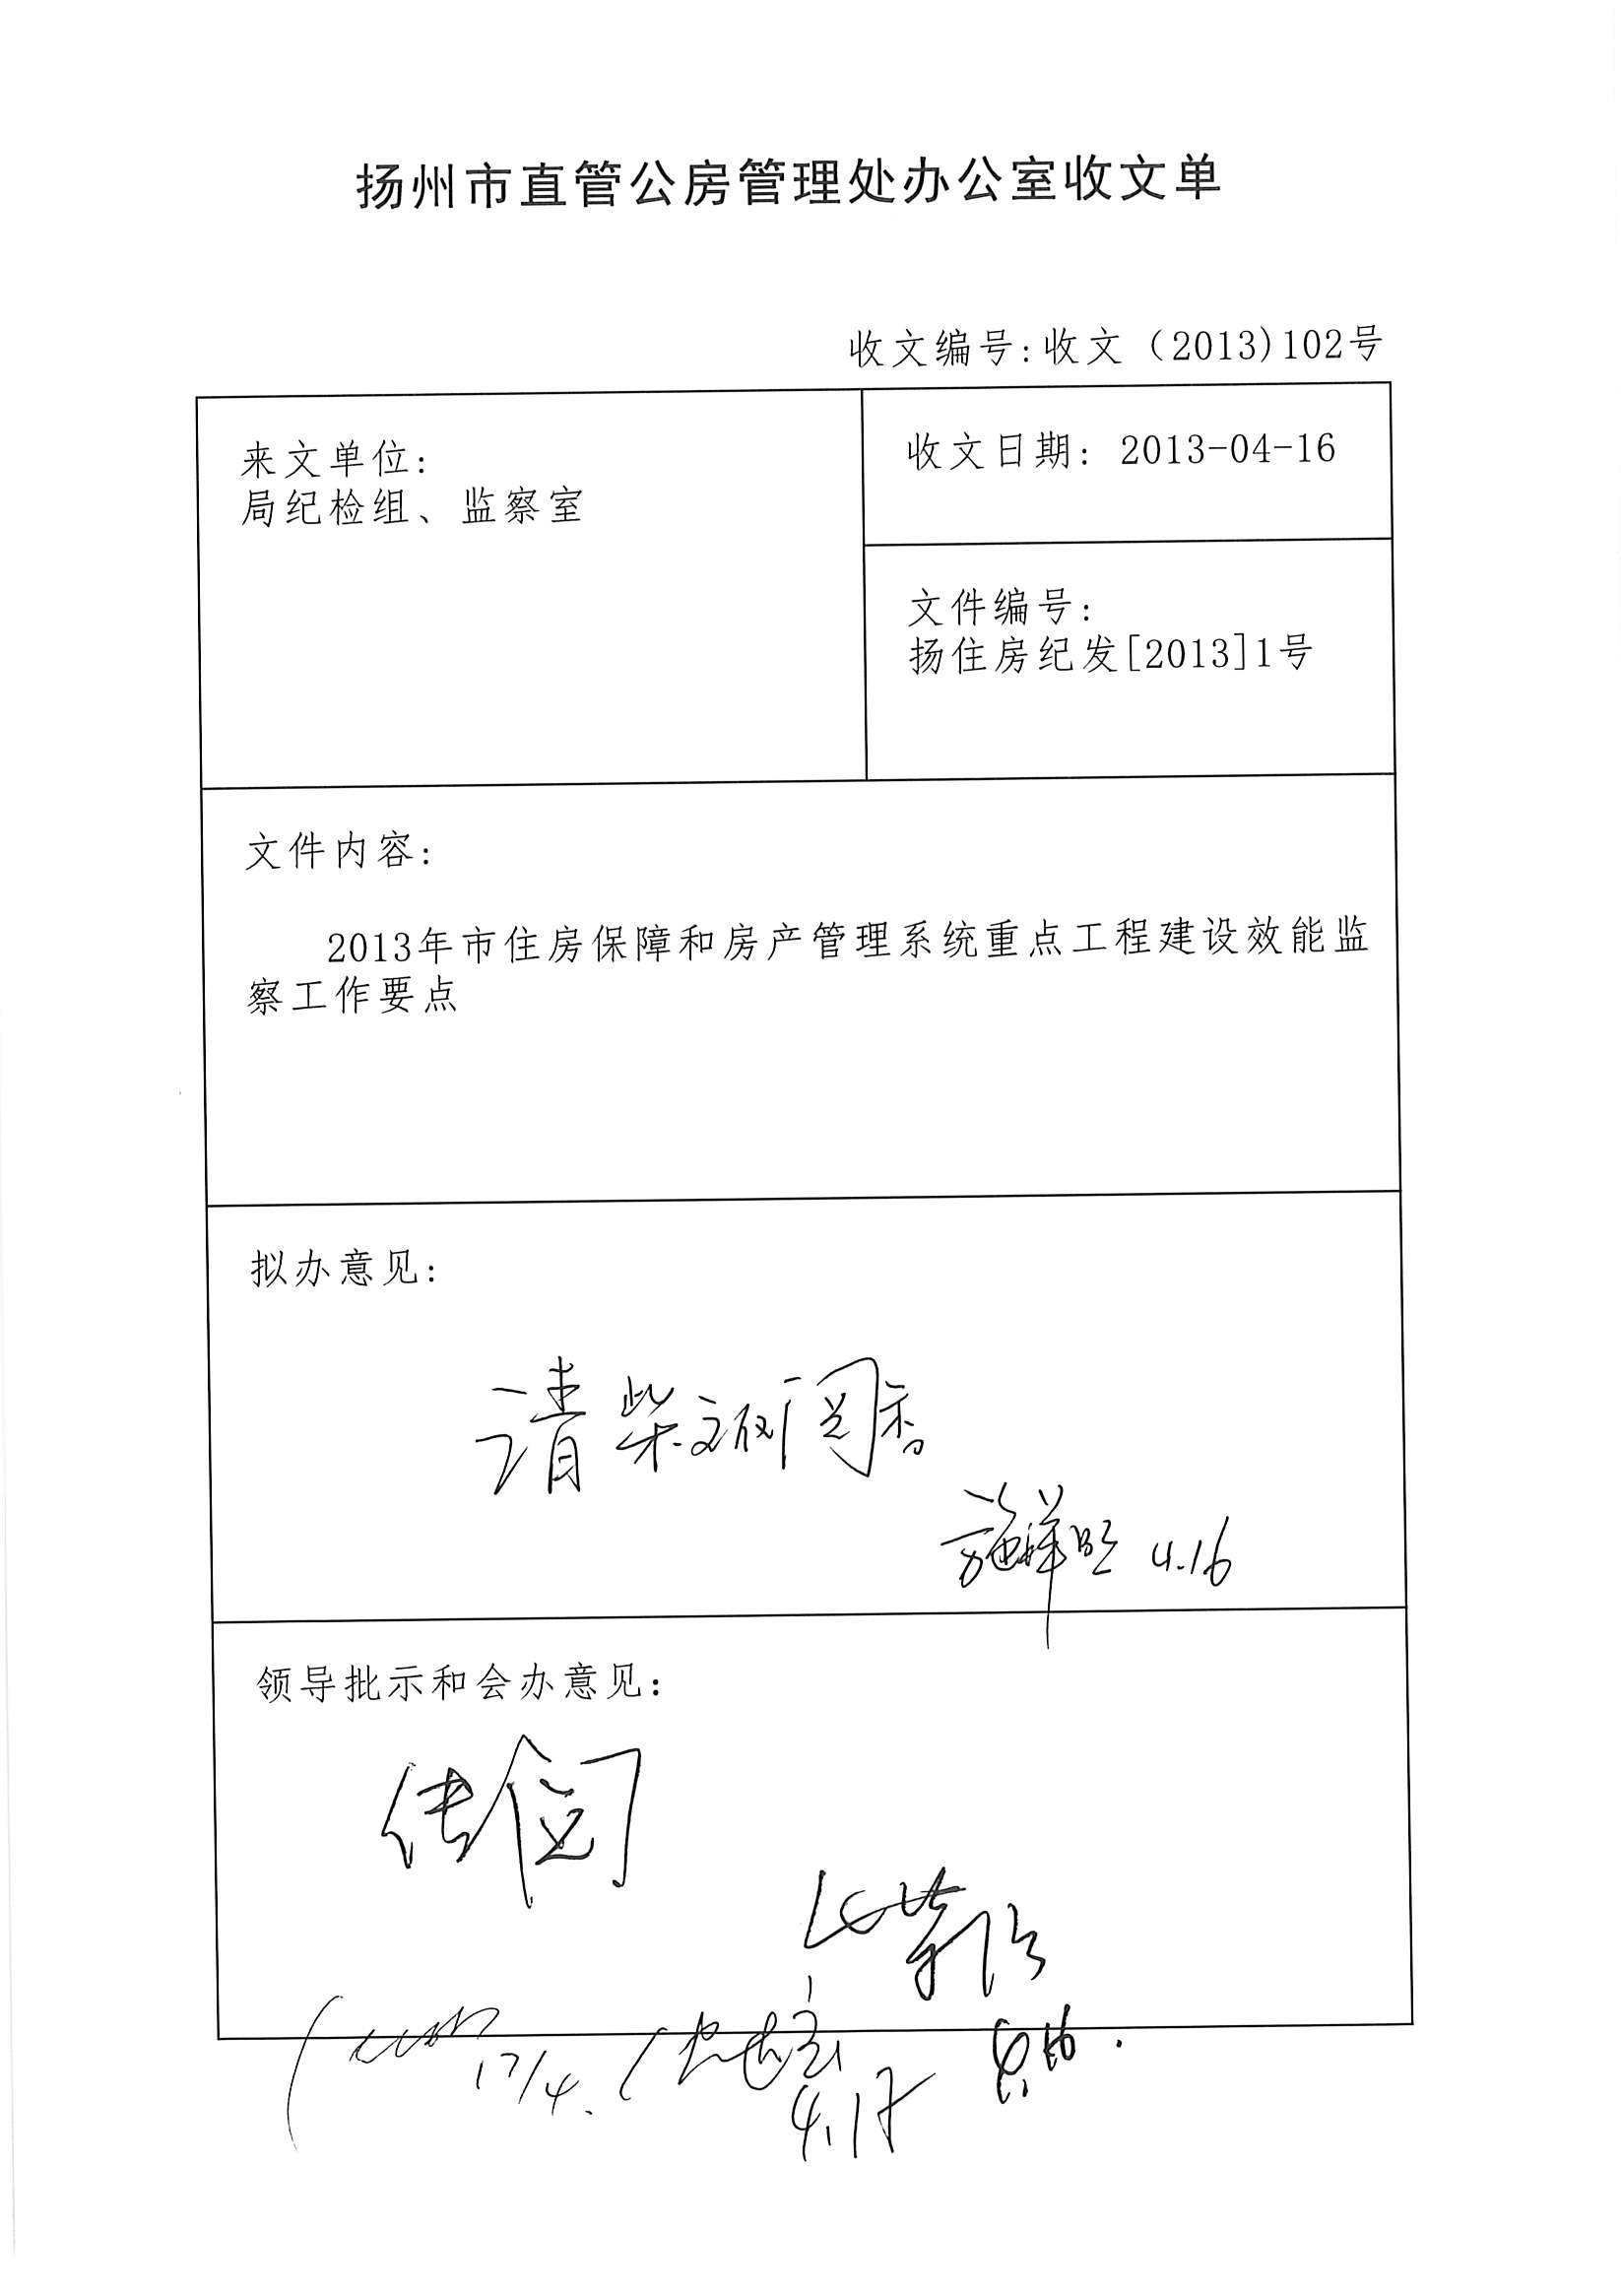 扬州市直管公房管理处办公室收文单
收文编号:收文（2013)102号
来文单位:
局纪检组、监察室
收文日期: 2013-04-16
文件编号:
扬住房纪发[2013]1号
文件内容:
2013年市住房保障和房产管理系统重点工程建设效能监
察工作要点
拟办意见:
请柴 阅示
4.16
领导批示和会办意见:
传阅
17/4.
4.17